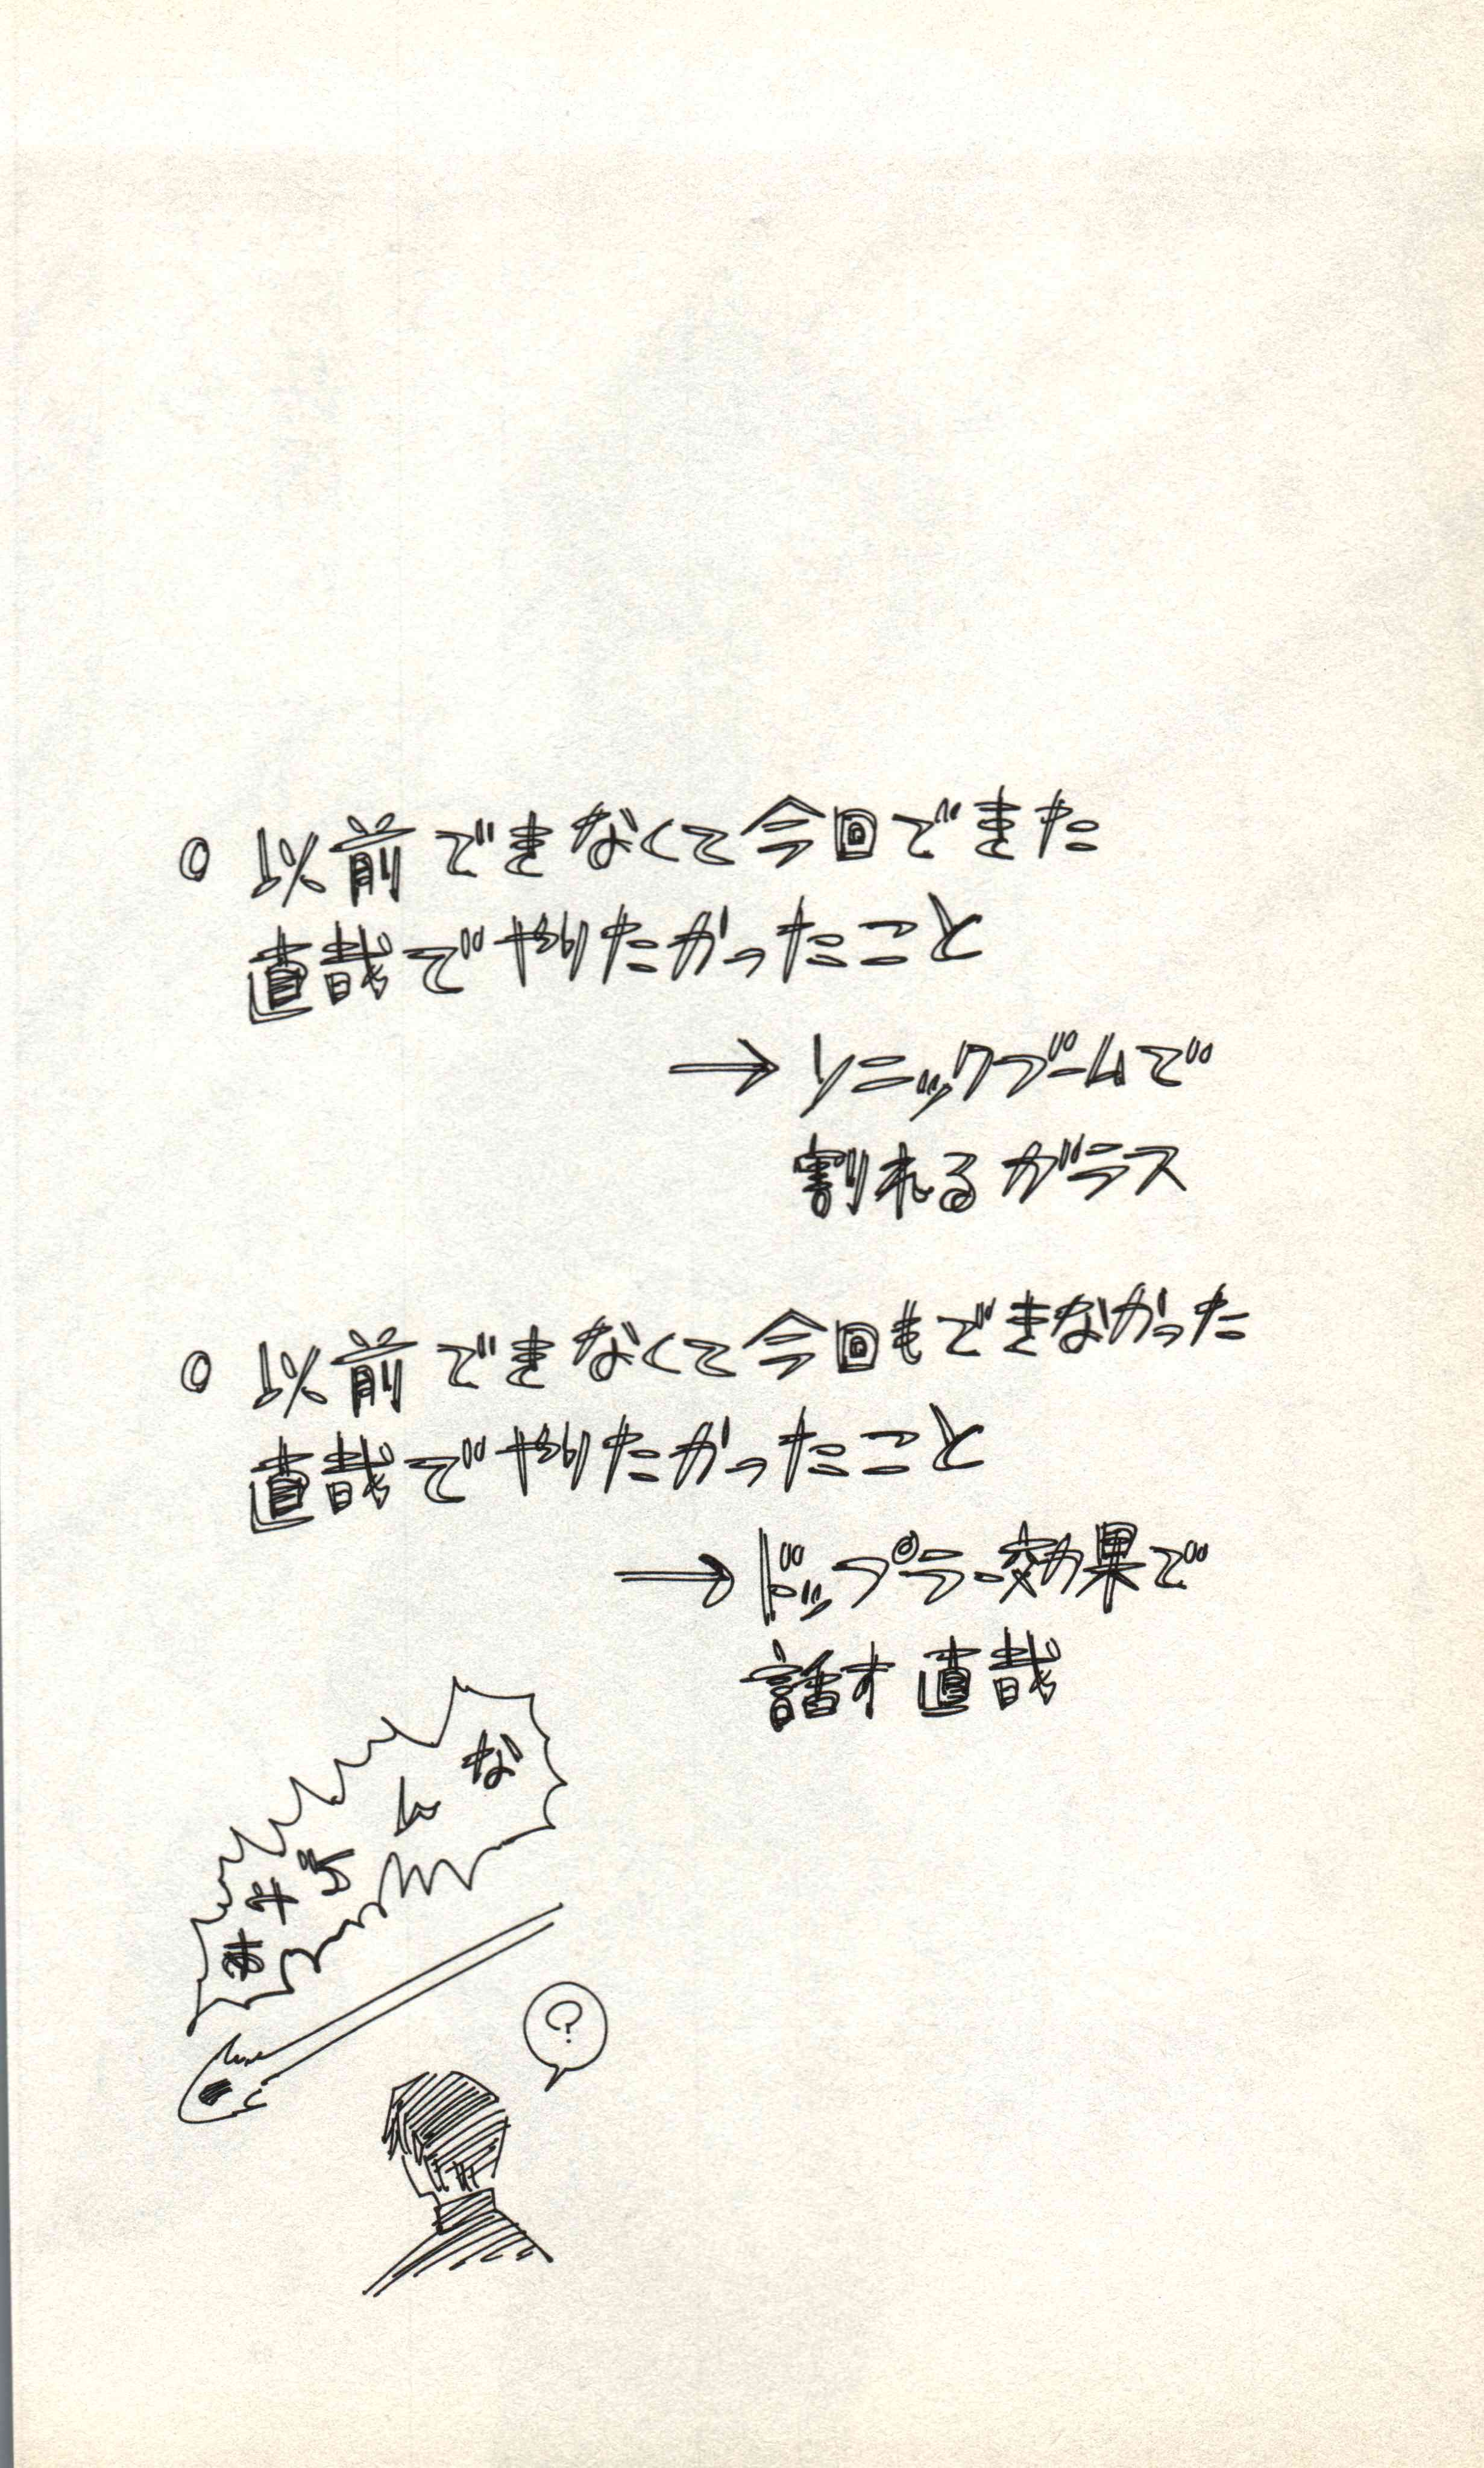 ○ 以前できなくて今回できた
直哉でやりたかったこと
→ ソニックブームで
割れるガラス
○ 以前できなくて今回もできなかった
直哉でやりたかったこと
→ ドップラー効果で
話す直哉
なん
?